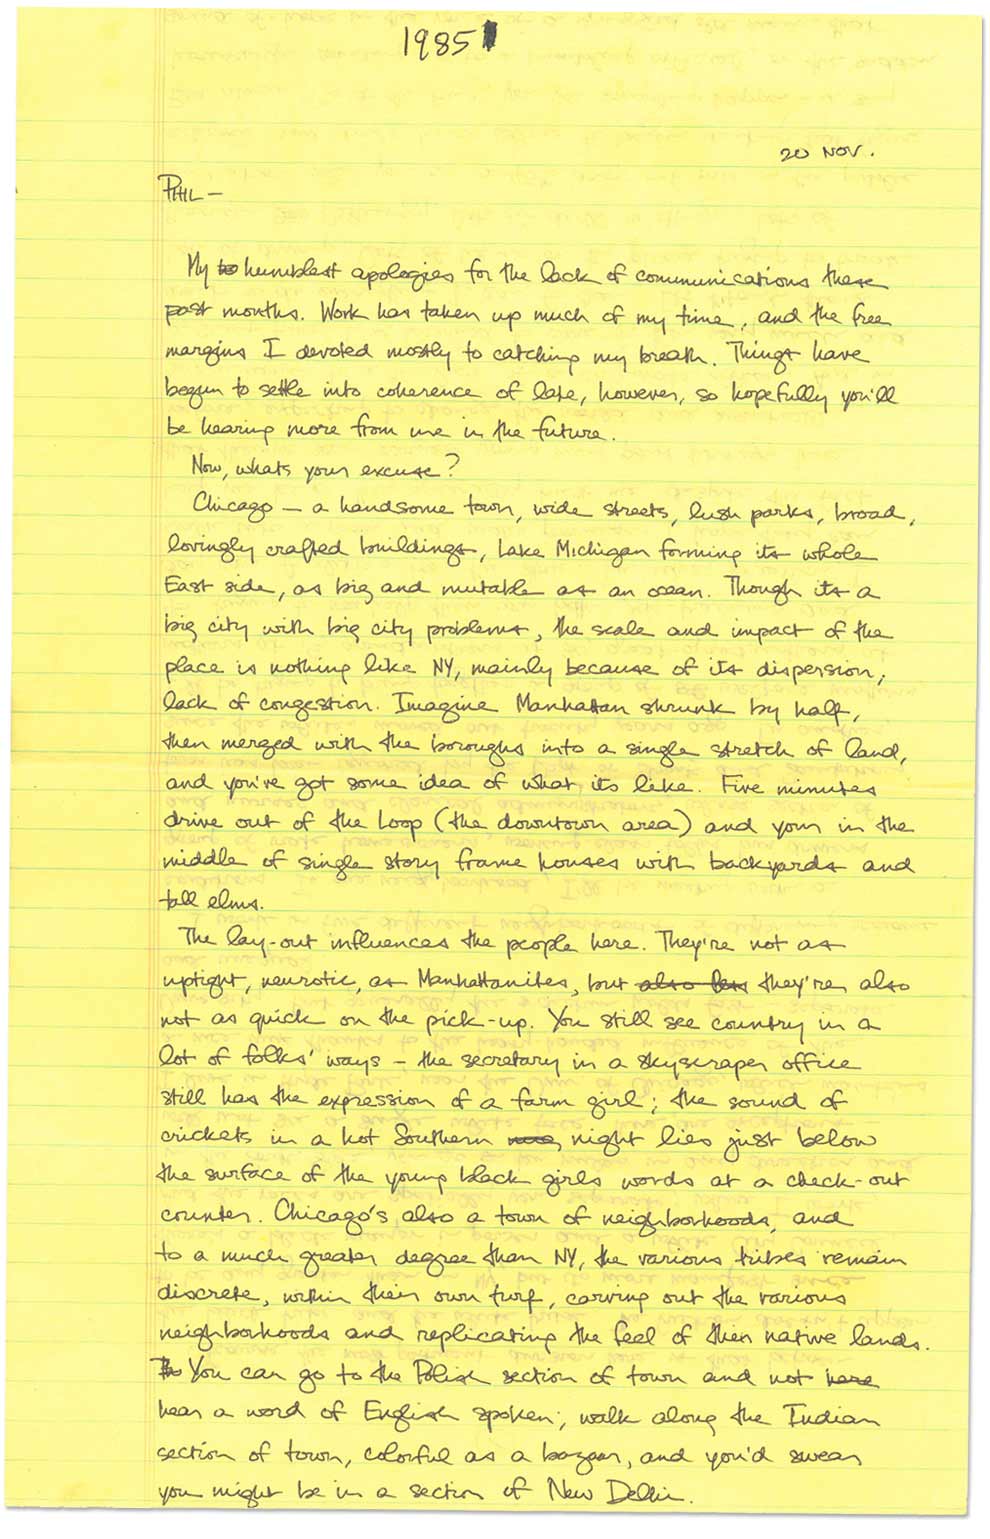 1985
20 NOV.
PHIL —
My humblest apologies for the lack of communications these
past months. Work has taken up much of my time, and the free
margins I devoted mostly to catching my breath. Things have
begun to settle into coherence of late, however, so hopefully you'll
be hearing more from me in the future.
Now, whats your excuse?
Chicago — a handsome town, wide streets, lush parks, broad,
lovingly crafted buildings, Lake Michigan forming its whole
East side, as big and mutable as an ocean. Though its a
big city with big city problems, the scale and impact of the
place is nothing like NY, mainly because of its dispersion,
lack of congestion. Imagine Manhattan shrunk by half,
then merged with the boroughs into a single stretch of land,
and you've got some idea of what its like. Five minutes
drive out of the Loop (the downtown area) and your in the
middle of single story frame houses with backyards and
tall elms.
The lay-out influences the people here. They're not as
uptight, neurotic, as Manhattanites, but also less they're also
not as quick on the pick-up. You still see country in a
lot of folks' ways – the secretary in a skyscraper office
still has the expression of a farm girl; the sound of
crickets in a hot Southern night lies just below
the surface of the young black girls words at a check-out
counter. Chicago's also a town of neighborhoods, and
to a much greater degree than NY, the various tribes remain
discrete, within their own turf, carving out the various
neighborhoods and replicating the feel of their native lands.
You can go to the Polish section of town and not here
hear a word of English spoken; walk along the Indian
section of town, colorful as a bazaar, and you'd swear
you might be in a section of New Delhi.